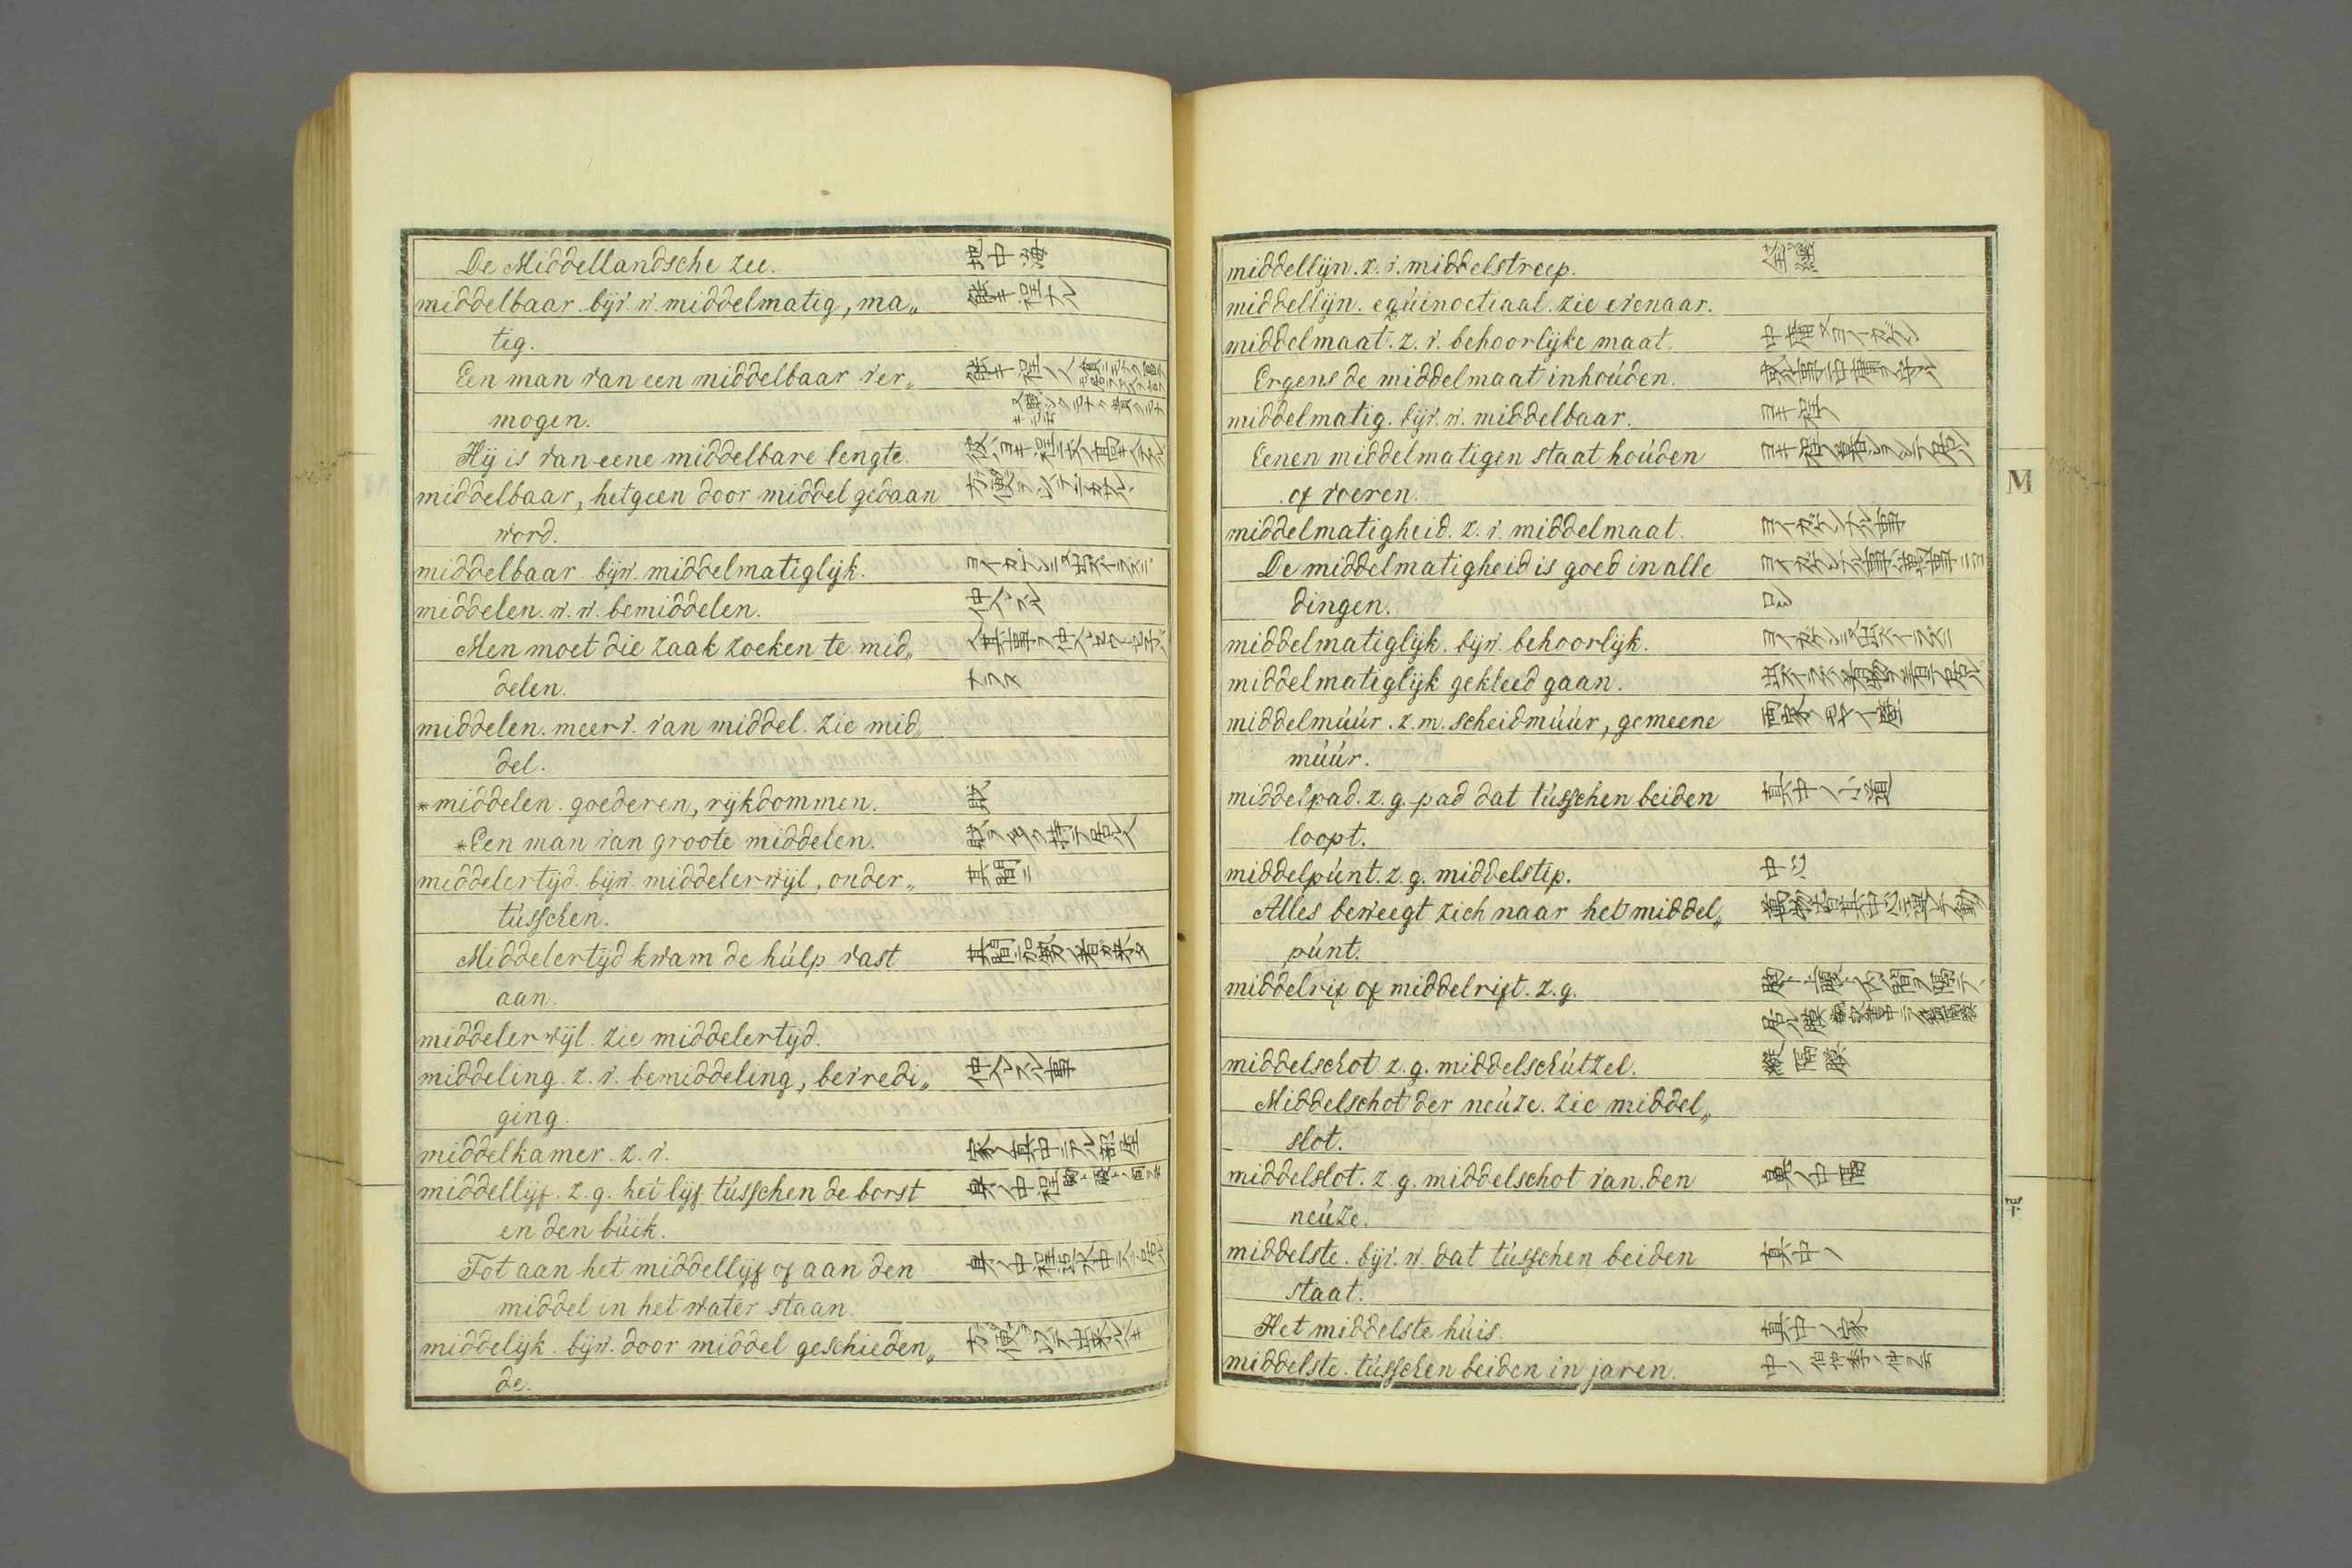 De Middellandsche zee. 地中海
middelbaar. bijv. w. middelmatig, ma„ 能キ程ナル
tig.
Een man van een middelbaar ver„ 能キ程ノ人
mogen.
Hij is van eene middelbare lengte. 彼ハヨキ程
middelbaar, hetgeen door middel gedaan 方便ヲ以テ
word.
middelbaar. bijw. middelmatiglijk. ヨイカゲンニ
middelen. w. w. bemiddelen. 仲人スル
Men moet die zaak zoeken te mid„
delen. ナラヌ
middelen. meerv. van middel. zie mid„
del.
*middelen. goederen, rijkdommen. 財
*Een man van groote middelen. 財ヲ多ク持テ居ル人
middelertijd. bijw. middelerwijl, onder„ 其間ニ
tússchen.
Middelertijd kwam de húlp vast 其間ニ
aan.
middelerwijl. zie middelertijd.
middeling. z. v. bemiddeling, bevredi„ 仲人スル事
ging.
middelkamer. z. v. 家ノ真中ニアル部屋
middellijf. z. g. het lijf tússchen de borst 身ノ中程
en den búik.
Tot aan het middellijf of aan den 身ノ中程
middel in het water staan.
middelijk. bijw. door middel geschieden„ 方便ヲ以テ出来ル
de.
middellijn. z. v. middelstreep.
middellijn. eqúinoctiaal. zie evenaar.
middelmaat. z. v. behoorlijke maat. 中庸 ヨイカゲン
Ergens de middelmaat inhoúden.
middelmatig. bijv. w. middelbaar. ヨキ程ノ
Eenen middelmatigen staat hoúden ヨキ程ノ
of voeren.
middelmatigheid. z. v. middelmaat. ヨイカゲンナル事
De middelmatigheid is goed in alle ヨイカゲンナル事ハ萬事ニ
dingen. ロシ
middelmatiglijk. bijw. behoorlijk. ヨイカゲンニ
middelmatiglijk gekleed gaan.
middelmúúr. z. m. scheidmúúr, gemeene
múúr.
middelpad. z. g. pad dat tússchen beiden 真中ノ小道
loopt.
middelpúnt. z. g. middelstip. 中心
Alles beweegt zich naar het middel„
púnt.
middelrif of middelrift. z. g.
居ル膜
middelschot. z. g. middelschútzel. 縦隔膜
Middelschot der neúze. zie middel„
slot.
middelslot. z. g. middelschot van den 鼻ノ中隔
neúze.
middelste. bijv. w. dat tússchen beiden 真中ノ
staat.
Het middelste húis. 真中ノ家
middelste. tússchen beiden in jaren. 中ノ
M